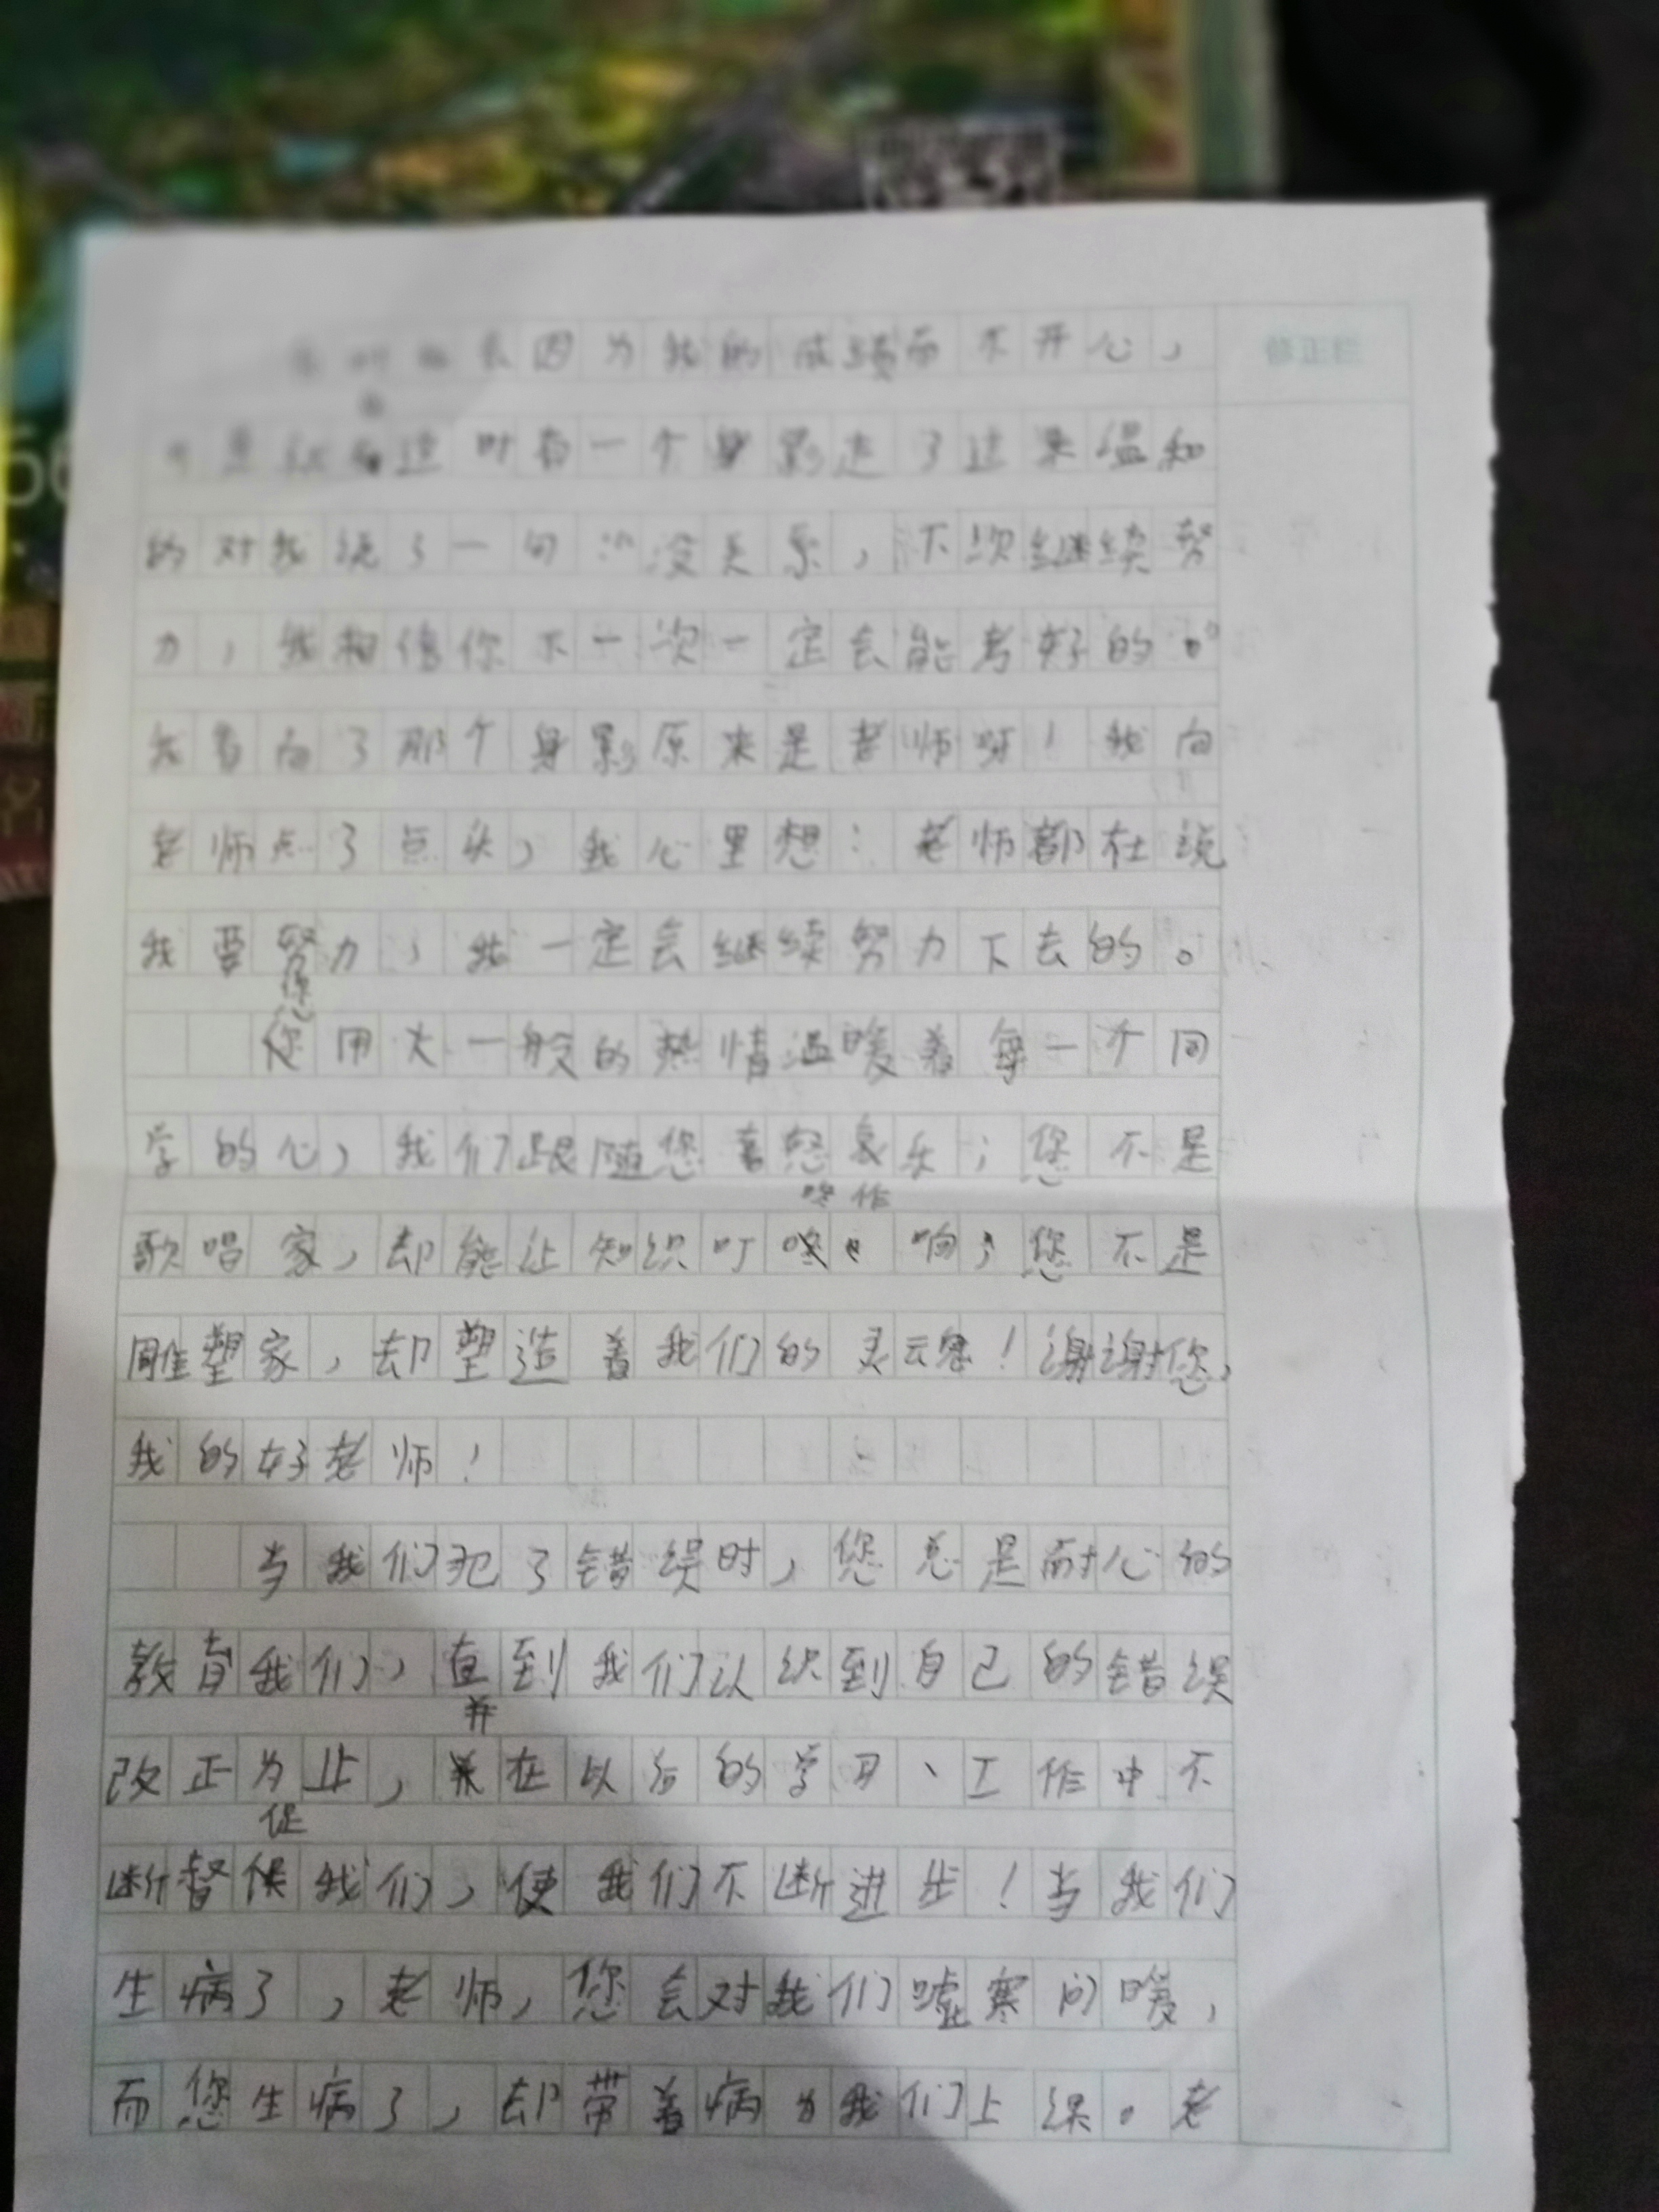 因为我的成绩而不开心，
修正栏
这时有一个身影走了过来温和
的对我说了一句：“没关系，下次继续努
力，我相信你下一次一定会能考好的。”
我看向了那个身影原来是老师呀！我向
老师点了点头，我心里想：老师都在说
我要努力，我一定会继续努力下去的。
您
您用火一般的热情温暖着每一个同
学的心，我们跟随您喜怒哀乐；您不是
咚作
歌唱家，却能让知识叮 响；您不是
雕塑家，却塑造着我们的灵魂！谢谢您，
我的好老师！
当我们犯了错误时，您总是耐心的
教育我们，直到我们认识到自己的错误
并
改正为止，在以后的学习、工作中不
促
断督 我们，使我们不断进步！当我们
生病了，老师，您会对我们嘘寒问暖，
而您生病了，却带着病为我们上课。老
56